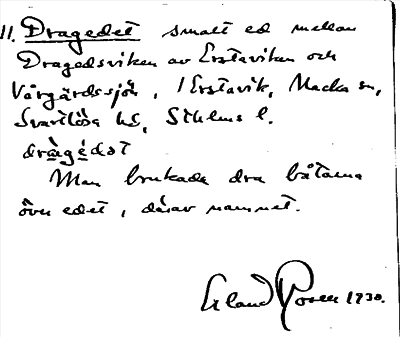 11. Dragedet smalt ed mellan
Dragedsviken av Erstaviken och
Vårgärdssjön, 1 Erstavik, Nacka sn,
Svartlösa hd, Sthlms l.
drag̀édət
Man brukade dra båtarna
över edet, därav namnet.
Erland Rosell 1930.